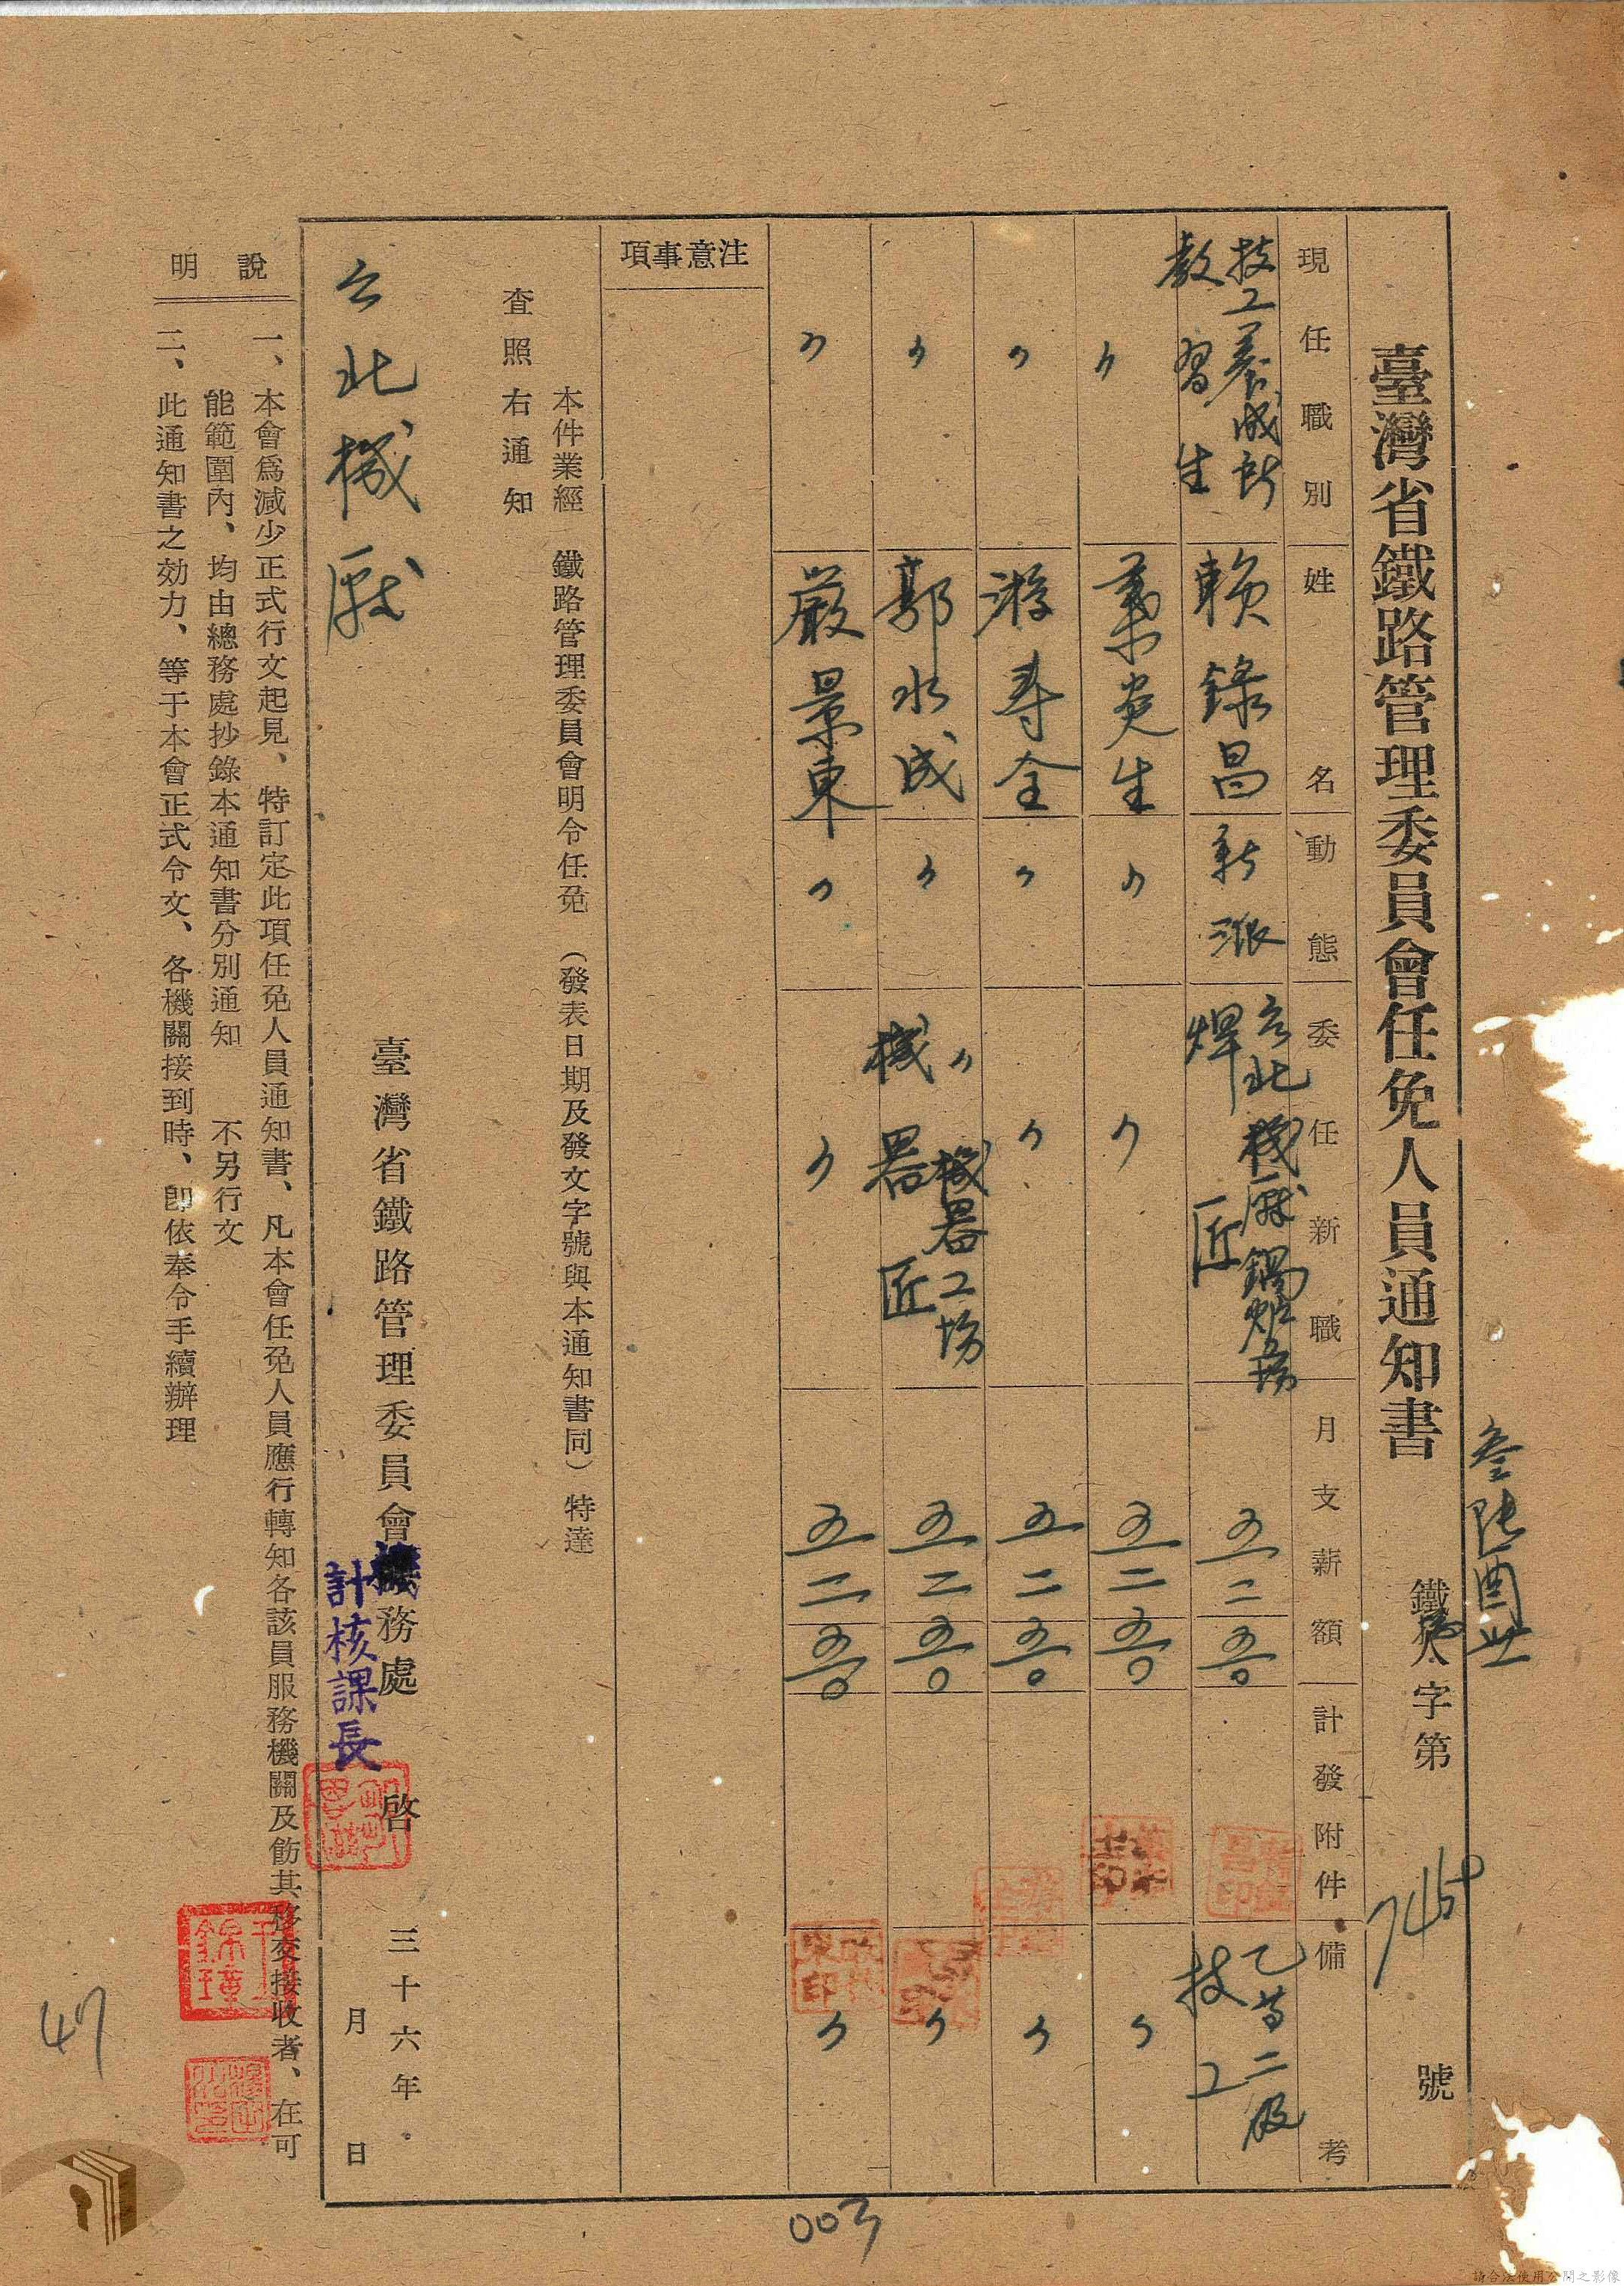 臺灣省鐵路管理委員會任免人員通知書
鐵人字第7454號
叁陸酉世
現任職別
姓名
動態
委任新職
月支薪額
計發附件
備考
技工養成所
教習生
賴錄昌
新派
台北機廠鍋炉工場
焊匠
五二五〇
乙等二級
技工
〃
葉炎生
〃
〃
五二五〇
〃
〃
游寿全
〃
〃
五二五〇
〃
〃
郭水成
〃
〃機器工場
機器匠
五二五〇
〃
〃
嚴景東
〃
〃
五二五〇
〃
注意事項
本件業經 鐵路管理委員會明令任免 (發表日期及發文字號與本通知書同) 特達
查照右通知
台北機廠
臺灣省鐵路管理委員會機務處 啓
計核課長
三十六年 月 日
說明
一、本會爲減少正式行文起見、特訂定此項任免人員通知書、凡本會任免人員應行轉知各該員服務機關及飭其移交接收者、在可
能範圍內、均由總務處抄錄本通知書分別通知 不另行文
二、此通知書之効力、等于本會正式令文、各機關接到時、卽依奉令手續辦理
47
003
請合法使用公開之影像